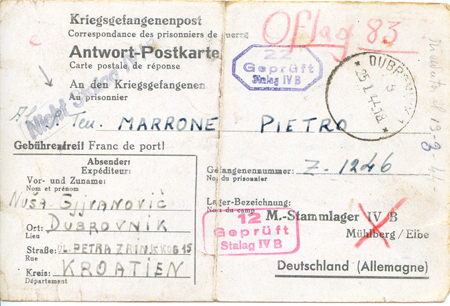 Kriegsgefangenenpost
Correspondance des prisonniers de guerre
Oflag 83
Antwort-Postkarte
Carte postale de réponse
22
Geprüft
Stalag IV B
25.1.44.18
An den Kriegsgefangenen
Au prisonnier
Ten. MARRONE PIETRO
Gebührenfrei! Franc de port!
Absender:
Expéditeur:
Vor- und Zuname:
Nom et prénom
Ort: DUBROVNIK
Lieu
Straße: UL. PETRA ZRINJSKOG 15
Rue
Kreis: KROATIEN
Département
Gefangenennummer: Z-1246
No. du prisonnier
Lager-Bezeichnung:
Nom du camp
M.-Stammlager IV B
Mühlberg / Elbe
12
Geprüft
Stalag IV B
Deutschland (Allemagne)